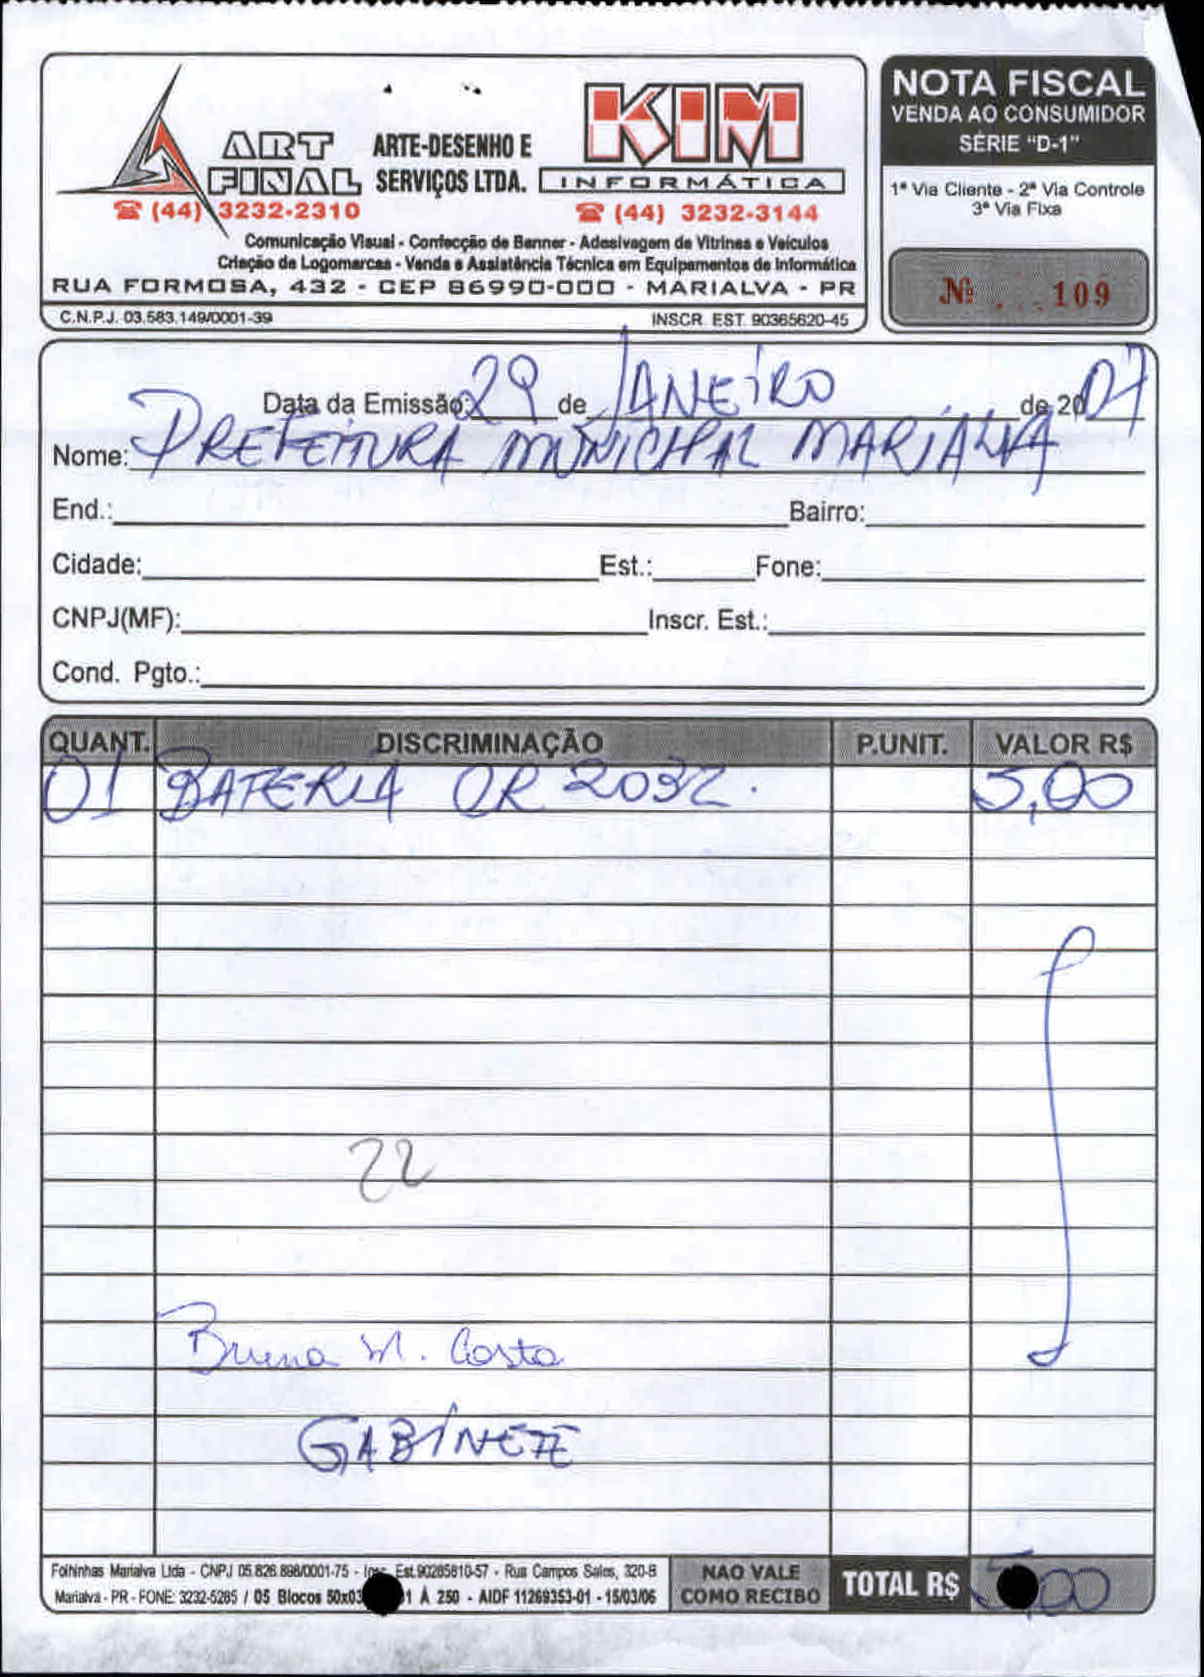 ART FINAL
ARTE-DESENHO E SERVIÇOS LTDA.
KIM INFORMÁTICA
(44) 3232-2310
(44) 3232-3144
Comunicação Visual - Confecção de Banner - Adesivagem de Vitrines e Veículos
Criação de Logomarcas - Venda e Assistência Técnica em Equipamentos de Informática
RUA FORMOSA, 432 - CEP 86990-000 - MARIALVA - PR
C.N.P.J. 03.583.149/0001-39 INSCR. EST. 90365620-45
NOTA FISCAL
VENDA AO CONSUMIDOR
SÉRIE "D-1"
1ª Via Cliente - 2ª Via Controle
3ª Via Fixa
Nº ...109
Data da Emissão: 29 de JANEIRO de 2007
Nome: PREFEITURA MUNICIPAL MARIALVA
End.: Bairro:
Cidade: Est.: Fone:
CNPJ(MF): Inscr. Est.:
Cond. Pgto.:
QUANT. DISCRIMINAÇÃO P.UNIT. VALOR R$
01 BATERIA CR 2032. 5,00
22
Bruna M. Costa
GABINETE
Folhinhas Marialva Ltda - CNPJ 05.826.898/0001-75 - Insc. Est. 90285810-57 - Rua Campos Sales, 320-B
Marialva - PR - FONE: 3232-5285 / 05 Blocos 50x03 1 À 250 - AIDF 11269353-01 - 15/03/06
NAO VALE
COMO RECIBO
TOTAL R$ 5,00